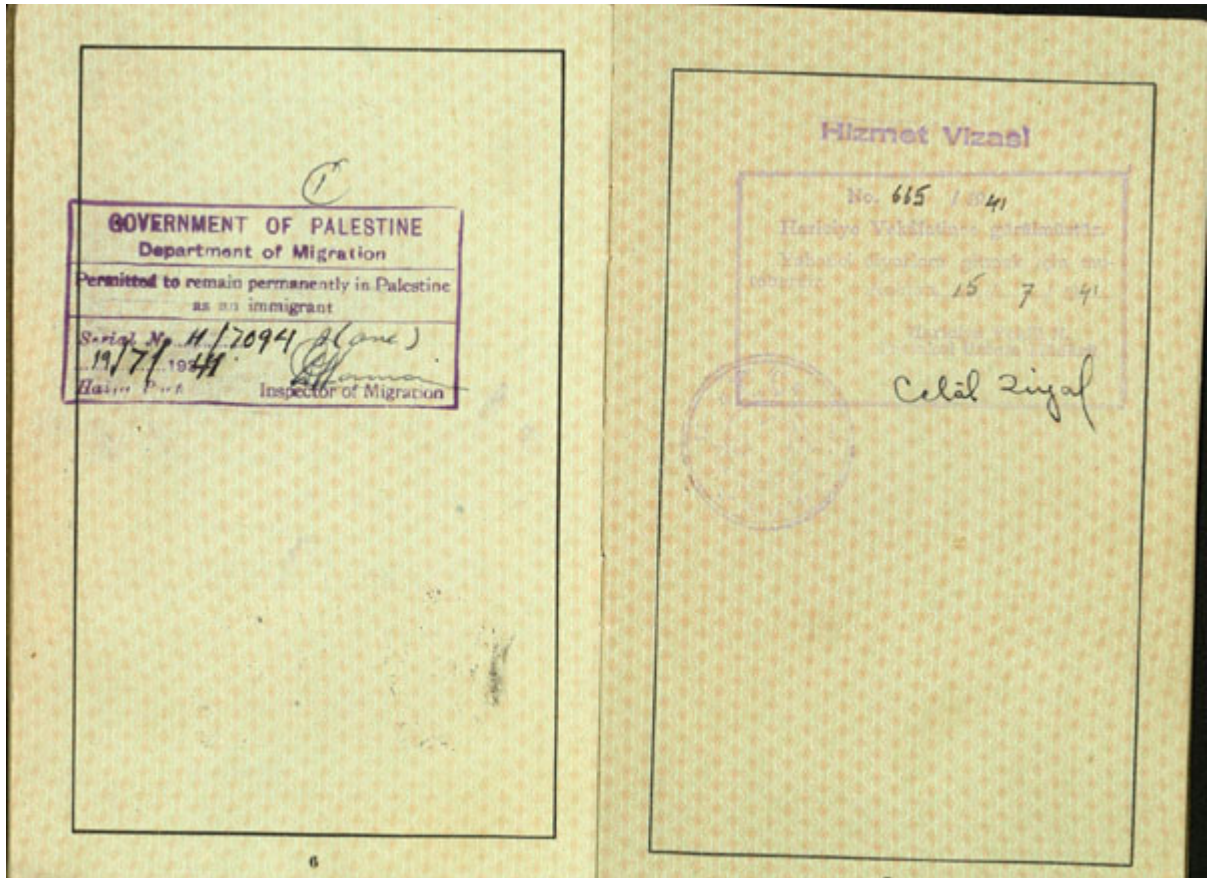 1
GOVERNMENT OF PALESTINE
Department of Migration
Permitted to remain permanently in Palestine
as an immigrant
Serial No H/7094 (one)
19/7/1941
Haifa Port Inspector of Migration
6
Hizmet Vizasi
No. 665 / 1941
Hariciye Vekâletince görülmüştür.
15 7 41
Celâl Ziyal